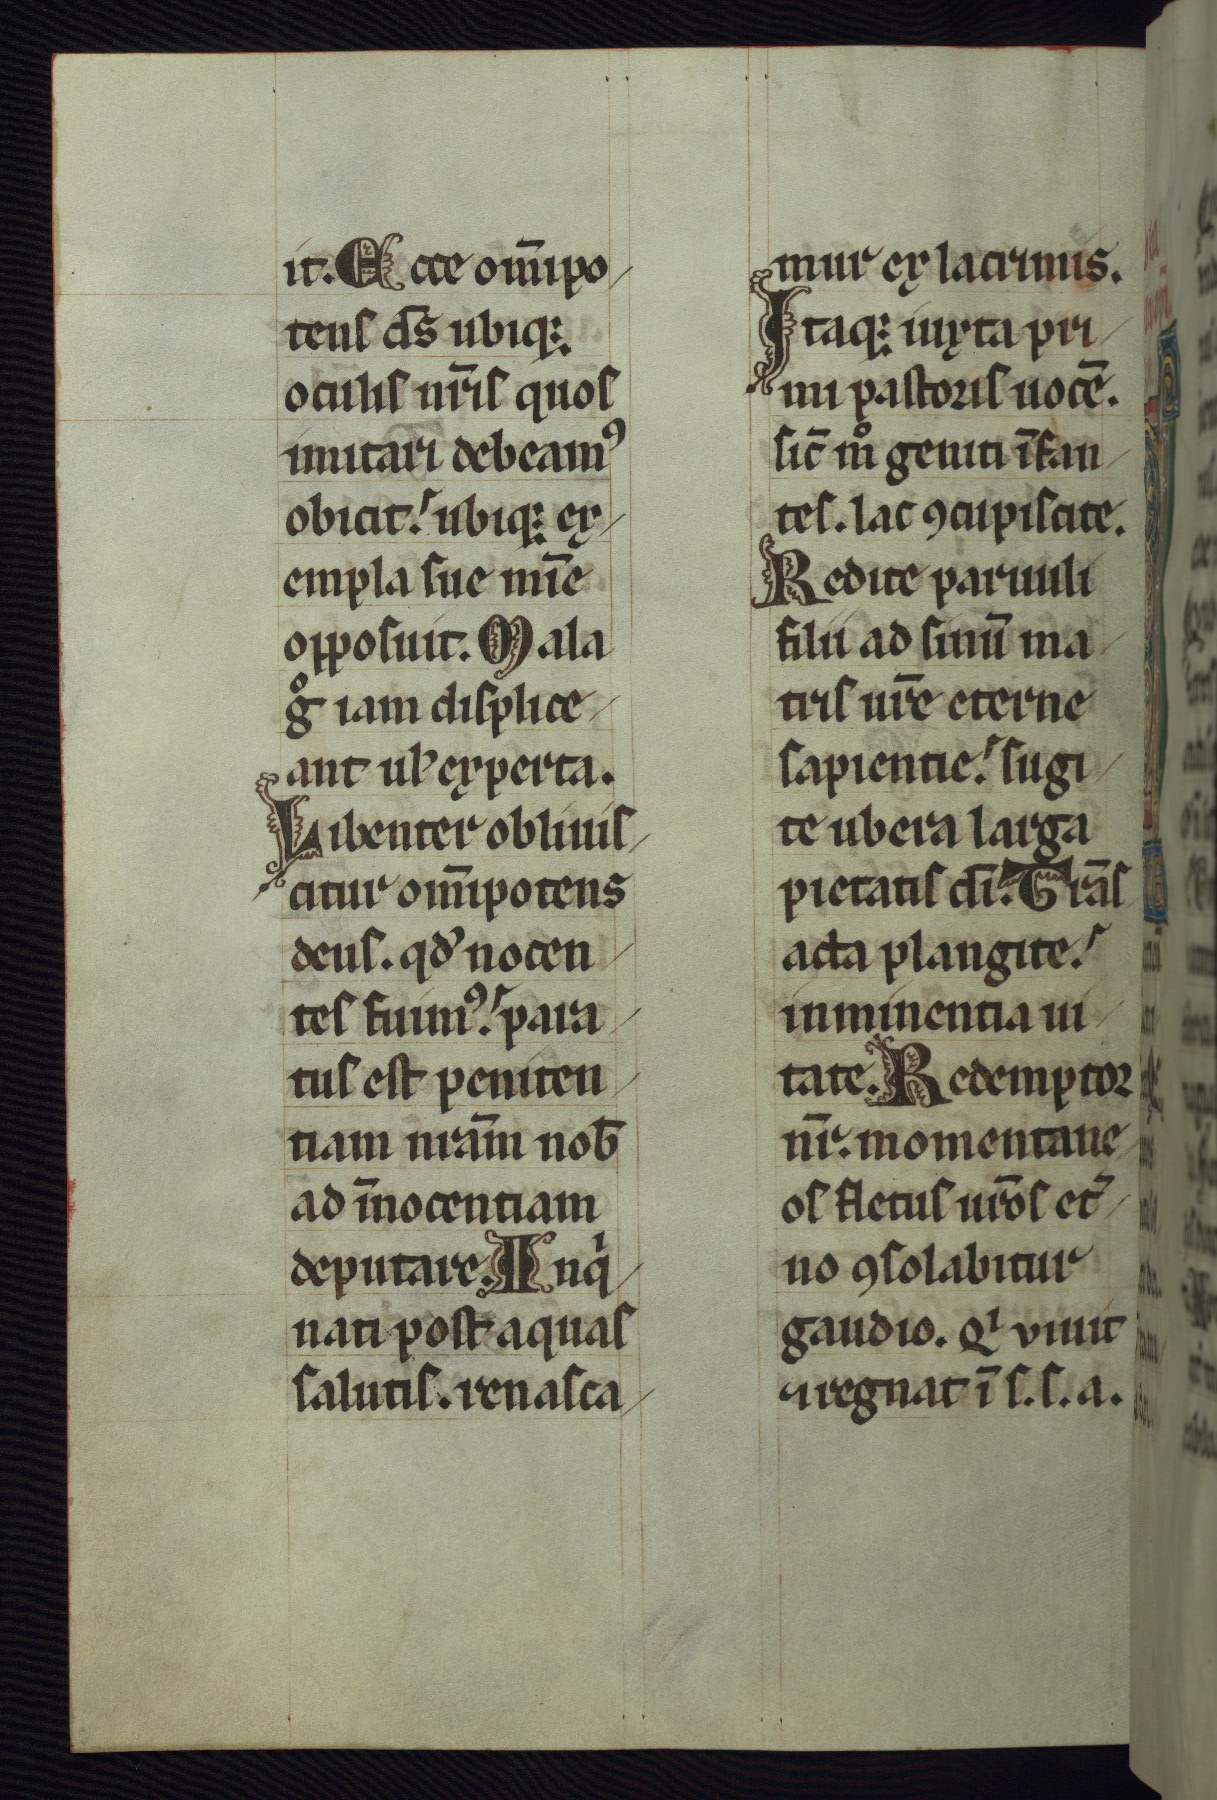 it. Ecce om̅ipo
tens d̅s ubiq;
oculis nr̅is quos
imitari debeamꝰ
obicit. ubiq; ex
empla sue mi̅e
opposuit. Mala
gͦ iam displice
ant ul̕ experta.
Libenter obliuis
citur om̅ipotens
deus. qd̕ nocen
tes fuimꝰ. para
tus est peniten
tiam nra̅m nob̅
ad i̅nocentiam
deputare. Inqͥ
nati post aquas
salutis. renasca
mur ex lacrimis.
Itaq; iuxta pri
mi pastoris uoce̅.
sic̅ mͦ geniti i̅fan
tes. lac ꝯcupiscite.
Redite paruuli
filii ad sinu̅ ma
tris ur̅e eterne
sapientie. sugi
te ubera larga
pietatis di̅. Tra̅s
acta plangite.
inminentia ui
tate. Redemptor
nr̅. momentane
os fletus uro̅s et̕
no ꝯsolabitur
gaudio. Qͥ viuit
⁊ regnat i̅ s. s. a.